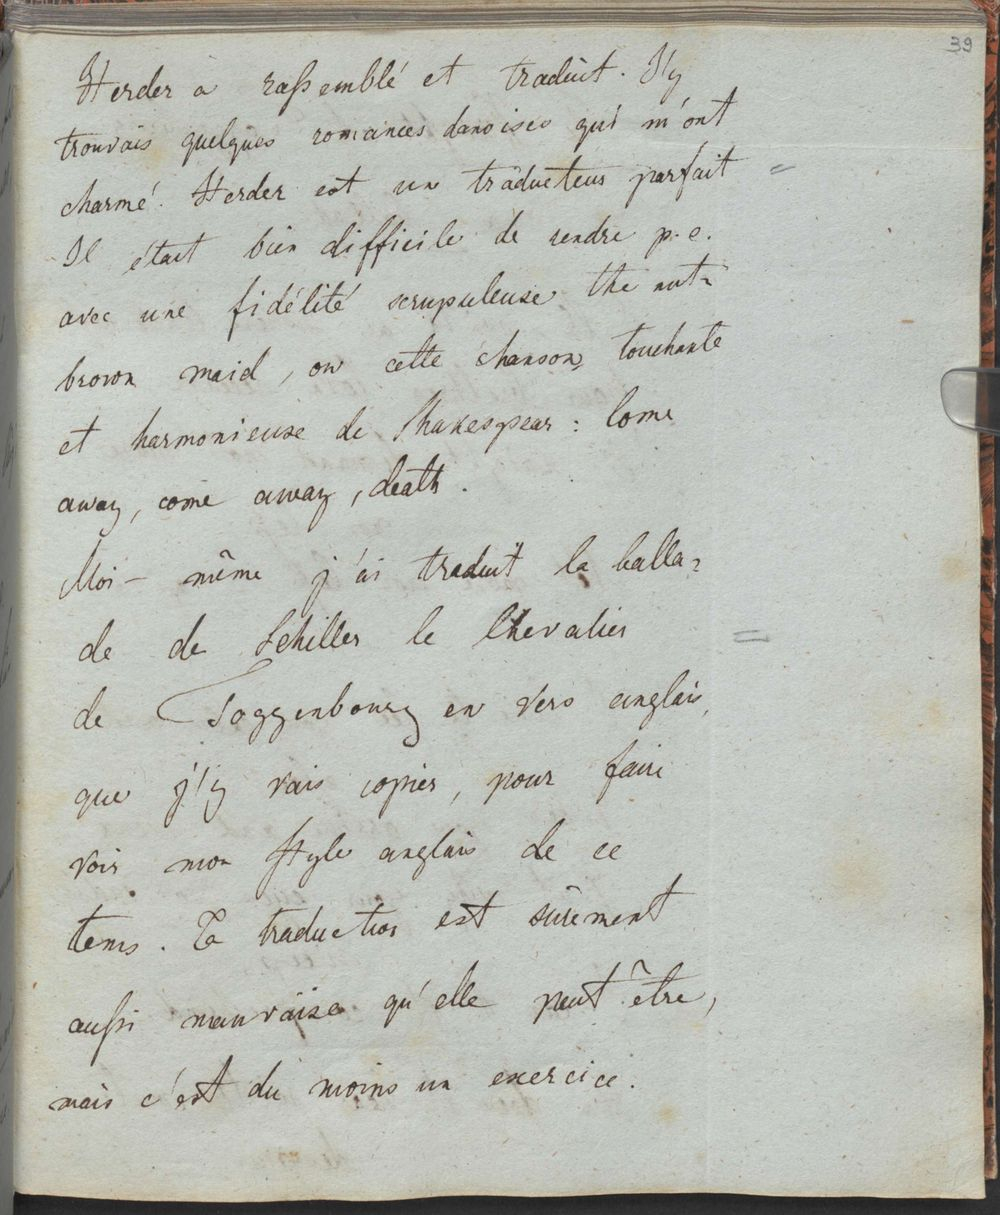 39
Herder a raſsemblé et traduit. J'y
trouvais quelques romances danoises qui m'ont
charmé. Herder est un traducteur parfait
Il était bien difficile de rendre p. e.
avec une fidélité scrupuleuse the nut=
brown maid, ou cette chanson touchante
et harmonieuse de Shakespear: Come
away, come away, death.
Moi-même j'ai traduit la balla=
de de Schiller le Chevalier
de Toggenbourg en vers anglais,
que j'y vais copier, pour faire
voir mon style anglais de ce
tems. La traduction est surêment
auſsi mauvaise qu'elle peut être,
mais c'est du moins un exercice.